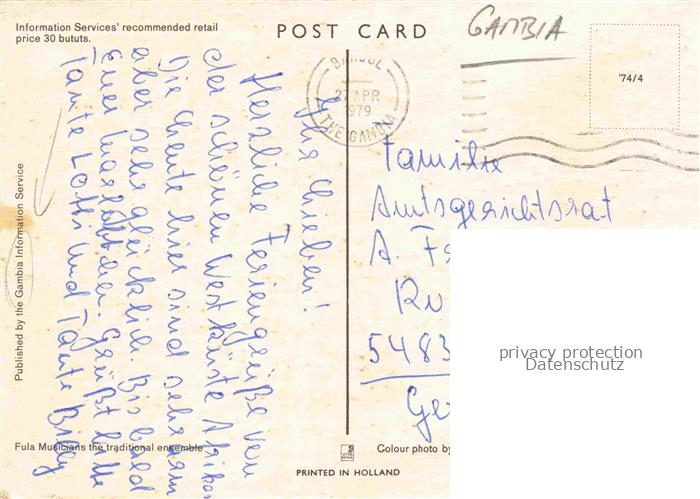 Information Services' recommended retail
price 30 bututs.
POST CARD
GAMBIA
'74/4
BANJUL
27 APR
1979
THE GAMBIA
Ihr Lieben!
Herzliche Feriengrüße von
der schönen Westküste Afrikas
Die Leute hier sind sehr arm
aber sehr glücklich. Bis bald
Eure
Grüßt bitte
Tante Lotti und Tante Billy
Familie
Amtsgerichtsrat
A. Fe
Ru
5483
Ge
privacy protection
Datenschutz
Published by the Gambia Information Service
Fula Musicians the traditional ensemble
Colour photo by
PRINTED IN HOLLAND